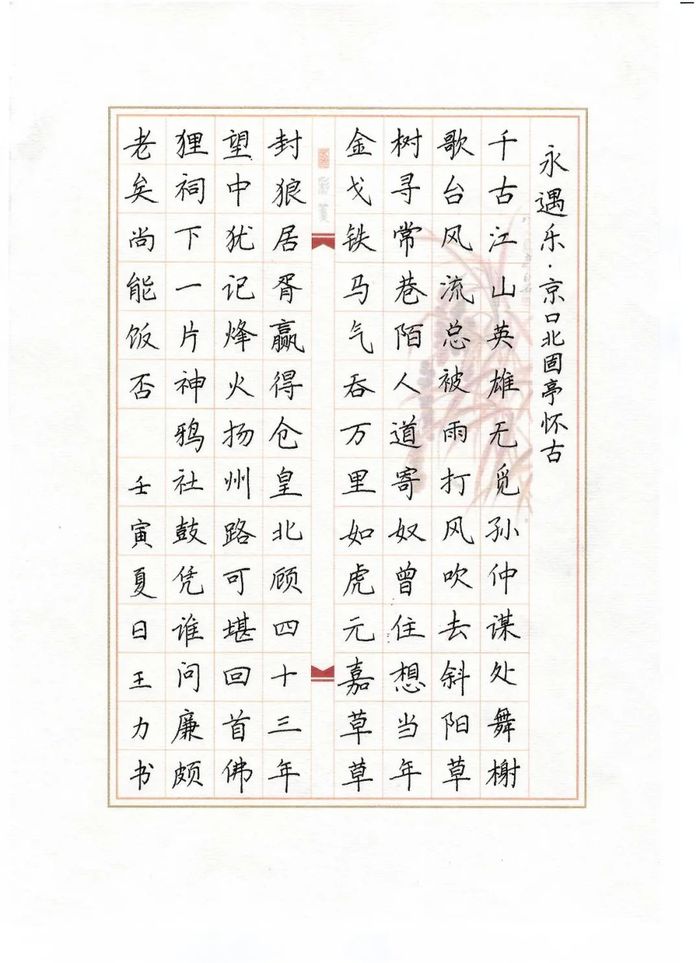 永遇乐·京口北固亭怀古
千古江山英雄无觅孙仲谋处舞榭
歌台风流总被雨打风吹去斜阳草
树寻常巷陌人道寄奴曾住想当年
金戈铁马气吞万里如虎元嘉草草
封狼居胥赢得仓皇北顾四十三年
望中犹记烽火扬州路可堪回首佛
狸祠下一片神鸦社鼓凭谁问廉颇
老矣尚能饭否 壬寅夏日王力书